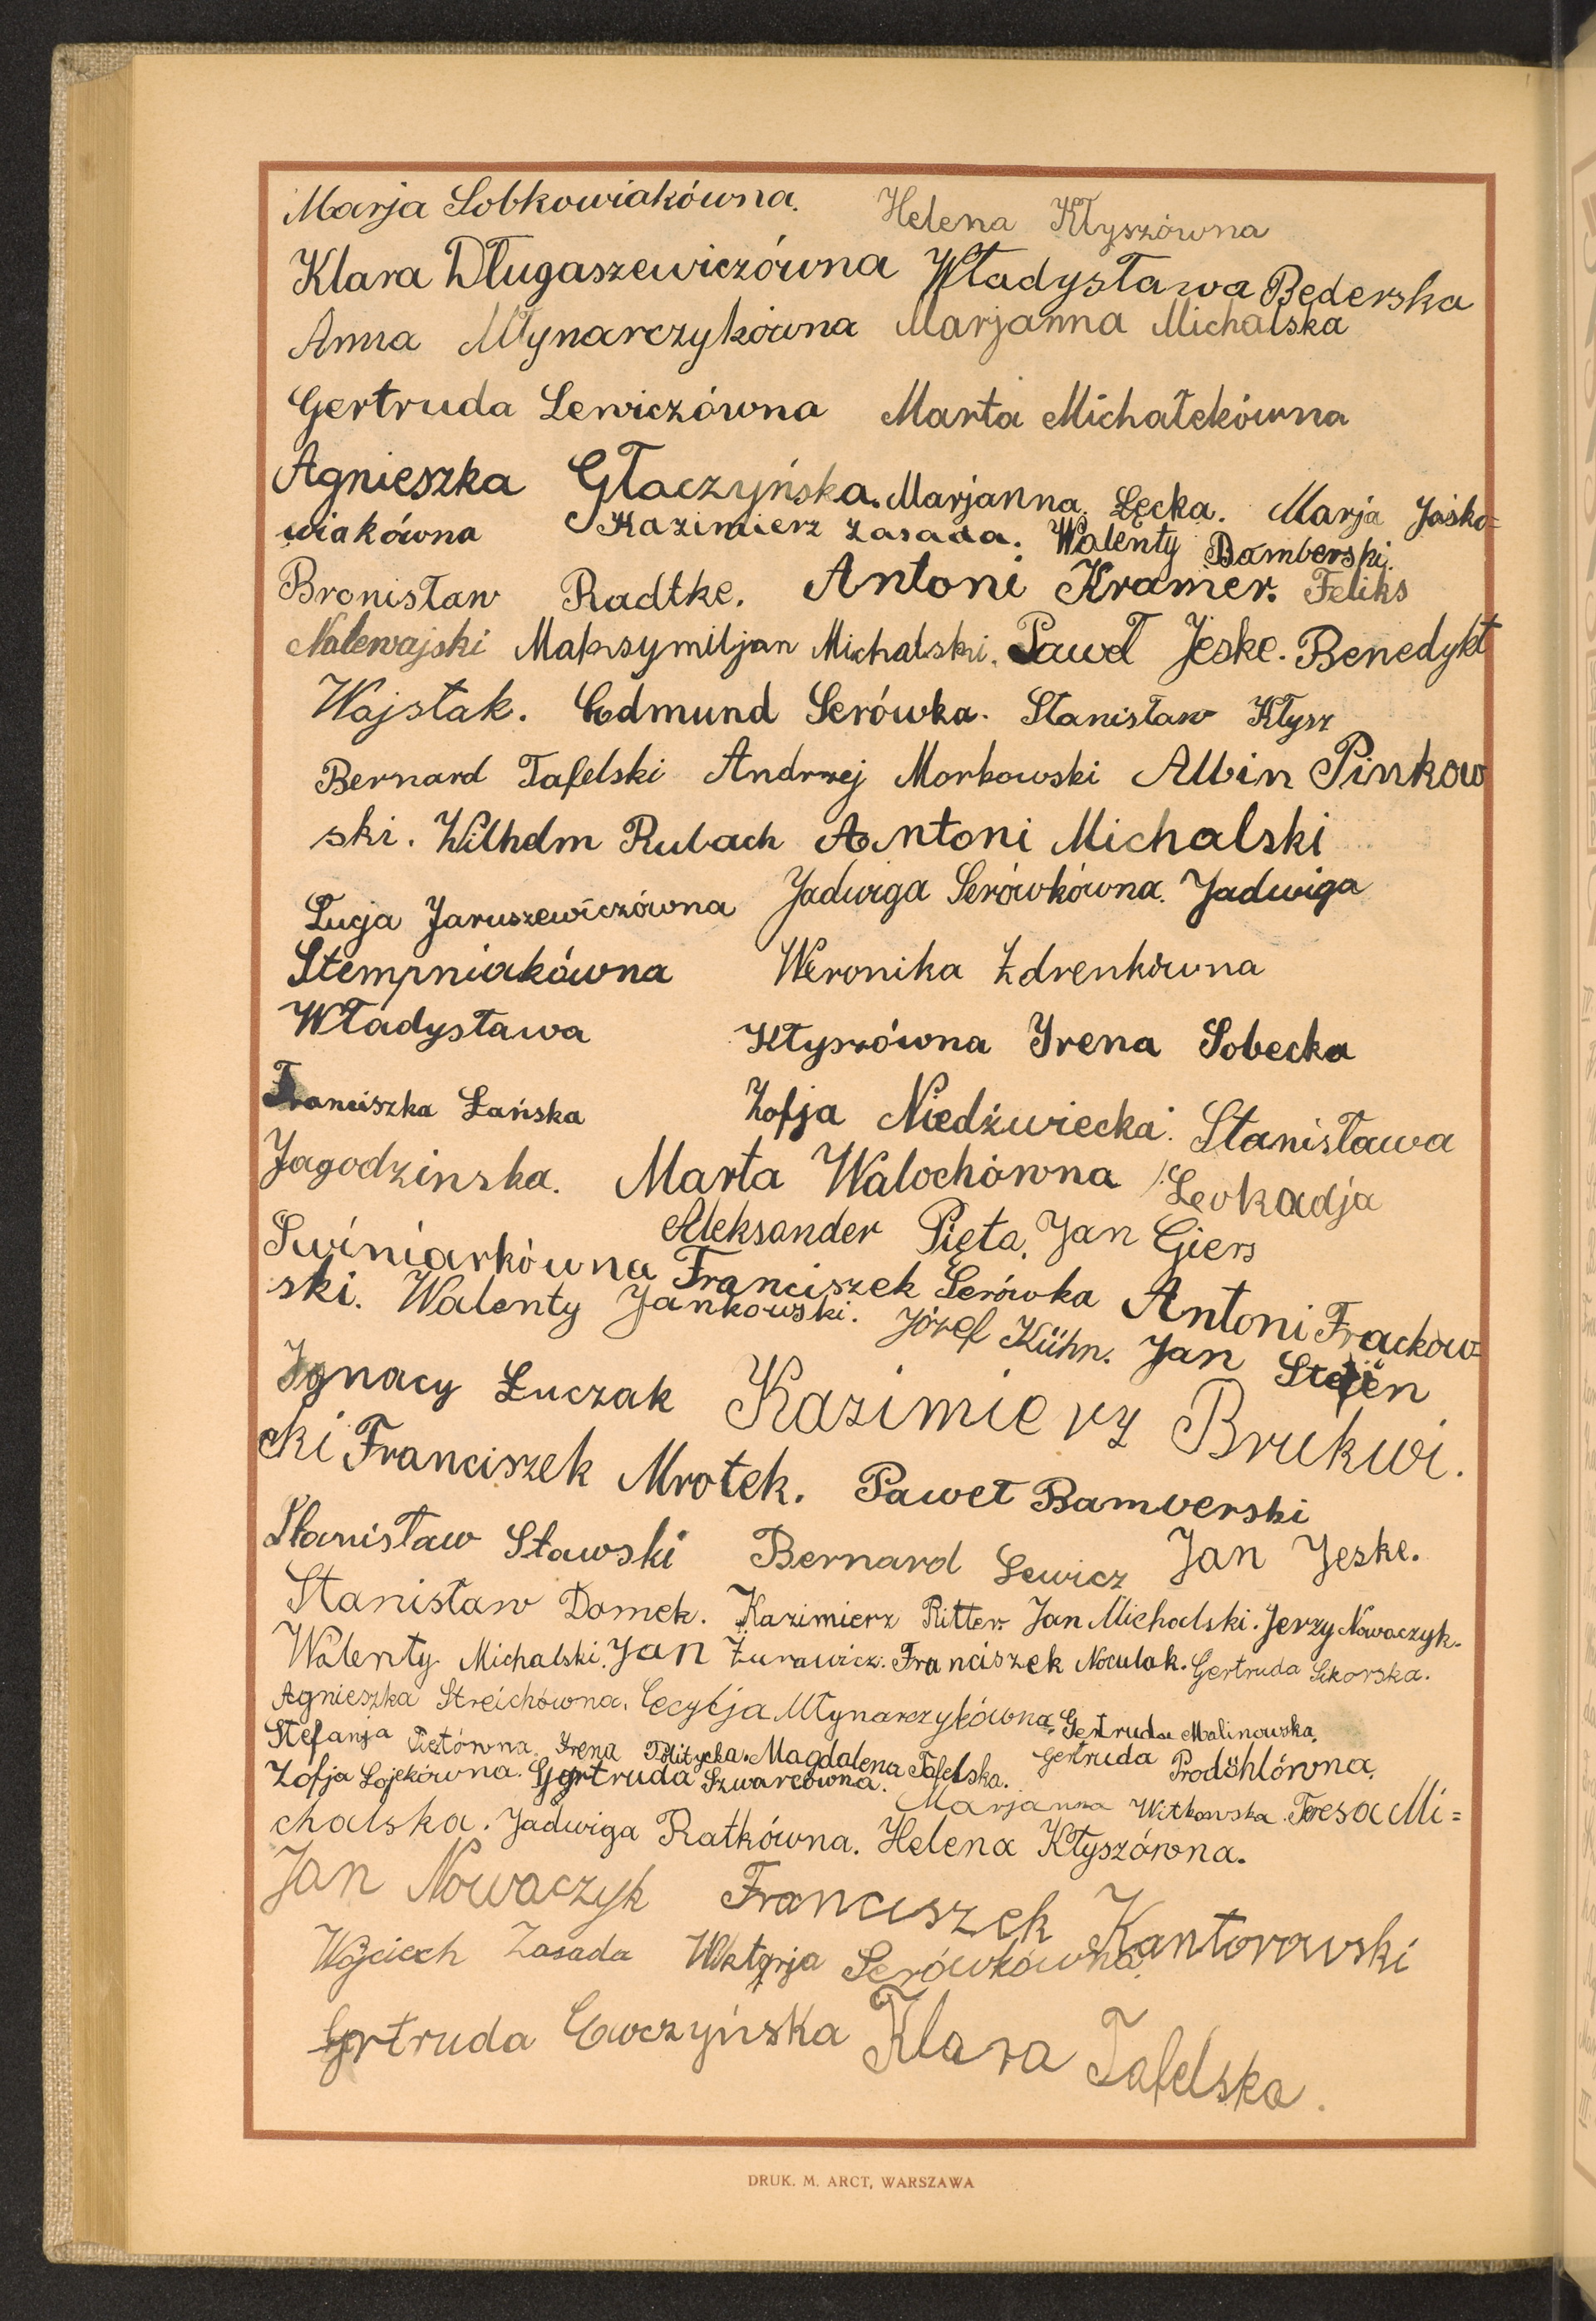 Marja Sobkowiakówna. Helena Kłyszówna
Klara Długaszewiczówna Władysława Bederska
Anna Młynarczykówna Marjanna Michalska
Gertruda Lewiczówna Marta Michałekówna
Agnieszka Głaczyńska. Marjanna Łęcka. Marja Jasko=
wiakówna Kazimierz Zasada. Walenty Bamberski.
Bronisław Radtke. Antoni Kramer. Feliks
Nalewajski Maksymiljan Michalski. Paweł Jeske. Benedykt
Wajstak. Edmund Serówka. Stanisław Kłysz
Bernard Tafelski Andrzej Morkowski Albin Pinkow
ski. Wilhelm Rubach Antoni Michalski
Łucja Jaruszewiczówna Jadwiga Serówkówna. Jadwiga
Stempniakówna Weronika Zdrenkówna
Władysława Kłyszówna Irena Sobecka
Franciszka Łańska Zofja Niedźwiecka. Stanisława
Jagodzinska. Marta Walochówna Leokadja
Swiniarkówna Aleksander Pięta. Jan Giers
ski. Franciszek Serówka Antoni Frackow=
Walenty Jankowski. Józef Kühn. Jan
Ignacy Łuczak Kazimierz Brukwi.
cki Franciszek Mrotek. Paweł Bamberski
Stanisław Stawski Bernard Lewicz Jan Jeske.
Stanisław Domek. Kazimierz Ritter. Jan Michalski. Jerzy Nowaczyk.
Walenty Michalski. Jan Żurawicz. Franciszek Noculak. Gertruda Sikorska.
Agnieszka Streichówna. Cecylja Młynarczykówna. Gertruda Malinowska.
Stefanja Piętówna. Irena Politycka. Magdalena Tafelska. Gertruda Prodöhlówna.
Zofja Łojekówna. Gertruda Szwarcówna. Marjanna Witkowska. Teresa Mi=
chalska. Jadwiga Ratkówna. Helena Kłyszówna.
Jan Nowaczyk Franciszek Kantorowski
Wojciech Zasada Wiktorja Serówkówna.
Gertruda Ewczyńska Klara Tafelska.
DRUK. M. ARCT, WARSZAWA